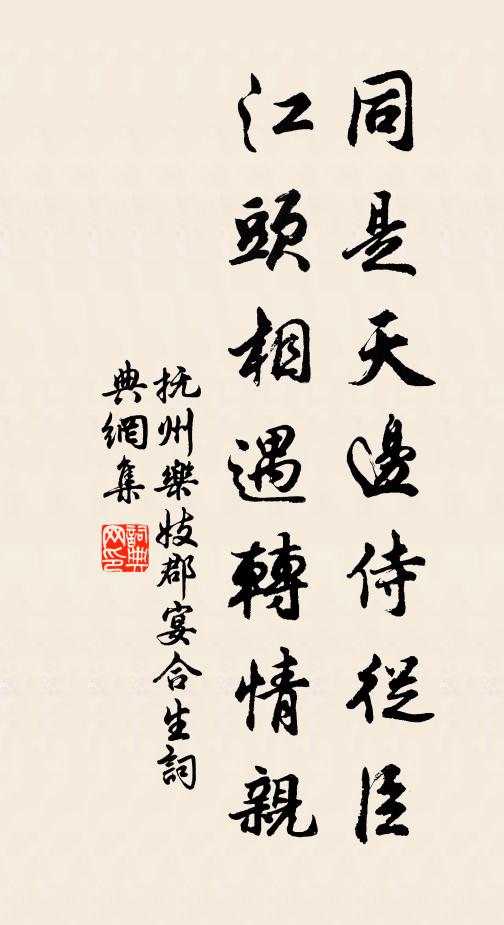 同是天邊侍從臣
江頭相遇轉情親
抚州樂妓郡宴合生詞
典網集
詞典網印